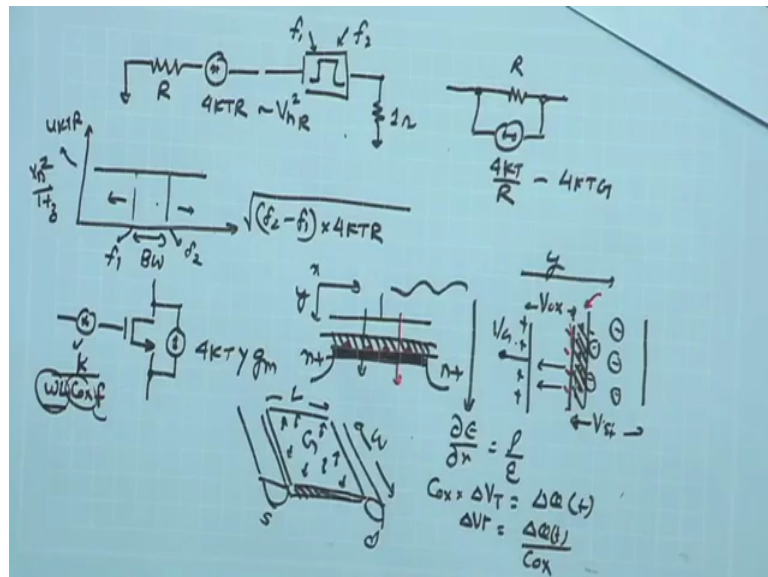 f₁ f₂
R
4KTR ~ Vn²R
1Ω
R
4KT/R - 4KTG
4KTR
Vn²/Hz
√(f₂-f₁) × 4KTR
f₁ BW f₂
4KTγgm
K
WLCoxf
x
y
n+ n+
y
Vox
VG
Vsi
L
W
S
d
∂E/∂x = ρ/ε
Cox × ΔVT = ΔQ(t)
ΔVT = ΔQ(t)/Cox